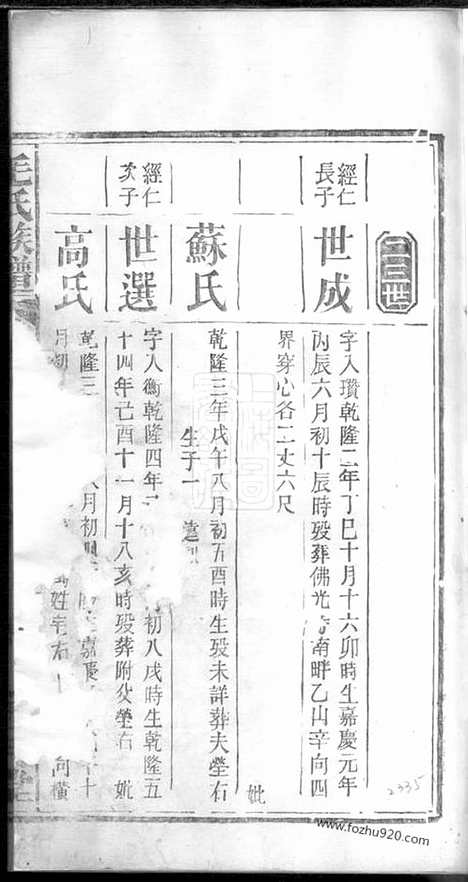 二三世
經仁
長子
世成
字人瓚乾隆二年丁巳十月十六卯時生嘉慶元年
丙辰六月初十辰時殁葬佛光 南畔乙山辛向四
界穿心各二丈六尺
妣
蘇氏
乾隆三年戊午八月初五酉時生殁未詳葬夫塋右
生子一
經仁
次子
世選
字人衡乾隆四年 初八戌時生乾隆五
十四年己酉十一月十八亥時殁葬附父塋右
妣
高氏
乾隆三 八月初 嘉慶 十
月初 姓宅右 向橫
毛氏族譜
2335
www.fozhu920.com